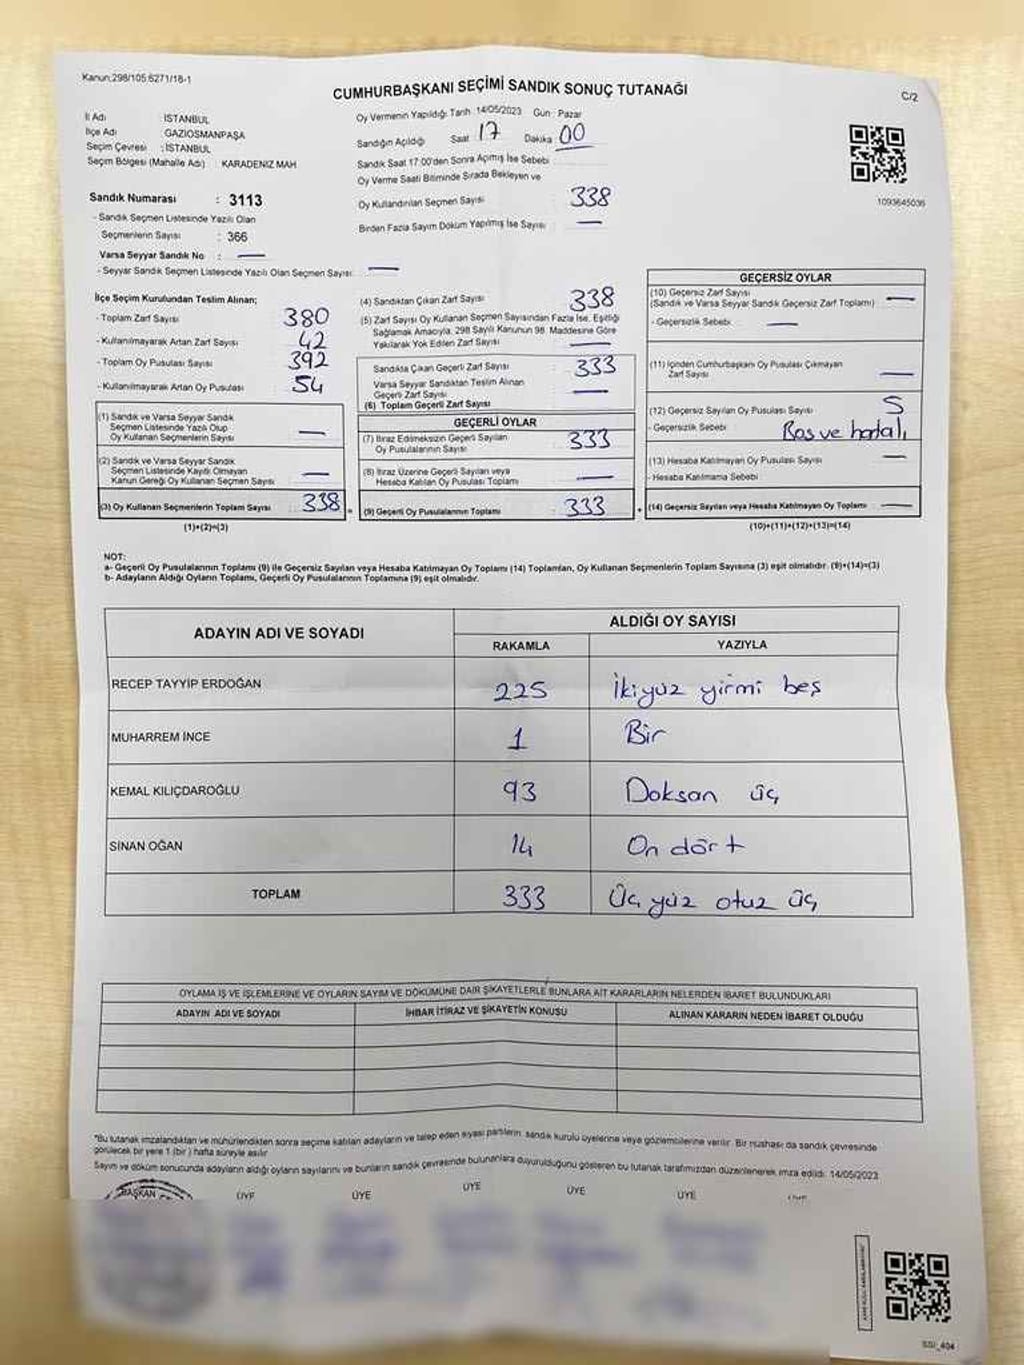 Kanun:298/105,6271/18-1
CUMHURBAŞKANI SEÇİMİ SANDIK SONUÇ TUTANAĞI
C/2
İl Adı : İSTANBUL
İlçe Adı : GAZİOSMANPAŞA
Seçim Çevresi : İSTANBUL
Seçim Bölgesi (Mahalle Adı) : KARADENİZ MAH
Oy Vermenin Yapıldığı Tarih 14/05/2023 Gün : Pazar
Sandığın Açıldığı Saat 17 Dakika 00
Sandık Saat 17:00'den Sonra Açılmış İse Sebebi
Oy Verme Saati Bitiminde Sırada Bekleyen ve
Oy Kullandırılan Seçmen Sayısı : 338
Birden Fazla Sayım Döküm Yapılmış İse Sayısı : —
1093645036
Sandık Numarası : 3113
- Sandık Seçmen Listesinde Yazılı Olan
Seçmenlerin Sayısı : 366
Varsa Seyyar Sandık No : —
- Seyyar Sandık Seçmen Listesinde Yazılı Olan Seçmen Sayısı: —
İlçe Seçim Kurulundan Teslim Alınan;
- Toplam Zarf Sayısı 380
- Kullanılmayarak Artan Zarf Sayısı 42
- Toplam Oy Pusulası Sayısı 392
- Kullanılmayarak Artan Oy Pusulası 54
(1) Sandık ve Varsa Seyyar Sandık
Seçmen Listesinde Yazılı Olup
Oy Kullanan Seçmenlerin Sayısı —
(2) Sandık ve Varsa Seyyar Sandık
Seçmen Listesinde Kayıtlı Olmayan
Kanun Gereği Oy Kullanan Seçmen Sayısı —
(3) Oy Kullanan Seçmenlerin Toplam Sayısı 338 =
(1)+(2)=(3)
(4) Sandıktan Çıkan Zarf Sayısı 338
(5) Zarf Sayısı Oy Kullanan Seçmen Sayısından Fazla İse, Eşitliği
Sağlamak Amacıyla, 298 Sayılı Kanunun 98. Maddesine Göre
Yakılarak Yok Edilen Zarf Sayısı —
Sandıkta Çıkan Geçerli Zarf Sayısı 333
Varsa Seyyar Sandıktan Teslim Alınan
Geçerli Zarf Sayısı —
(6) Toplam Geçerli Zarf Sayısı
GEÇERLİ OYLAR
(7) İtiraz Edilmeksizin Geçerli Sayılan
Oy Pusulalarının Sayısı 333
(8) İtiraz Üzerine Geçerli Sayılan veya
Hesaba Katılan Oy Pusulası Toplamı —
(9) Geçerli Oy Pusulalarının Toplamı 333 +
GEÇERSİZ OYLAR
(10) Geçersiz Zarf Sayısı
(Sandık ve Varsa Seyyar Sandık Geçersiz Zarf Toplamı) —
- Geçersizlik Sebebi : —
(11) İçinden Cumhurbaşkanı Oy Pusulası Çıkmayan
Zarf Sayısı —
(12) Geçersiz Sayılan Oy Pusulası Sayısı 5
- Geçersizlik Sebebi : Boş ve hatalı
(13) Hesaba Katılmayan Oy Pusulası Sayısı —
- Hesaba Katılmama Sebebi :
(14) Geçersiz Sayılan veya Hesaba Katılmayan Oy Toplamı —
(10)+(11)+(12)+(13)=(14)
NOT:
a- Geçerli Oy Pusulalarının Toplamı (9) ile Geçersiz Sayılan veya Hesaba Katılmayan Oy Toplamı (14) Toplamları, Oy Kullanan Seçmenlerin Toplam Sayısına (3) eşit olmalıdır. (9)+(14)=(3)
b- Adayların Aldığı Oyların Toplamı, Geçerli Oy Pusulalarının Toplamına (9) eşit olmalıdır.
ADAYIN ADI VE SOYADI ALDIĞI OY SAYISI
RAKAMLA YAZIYLA
RECEP TAYYİP ERDOĞAN 225 İkiyüz yirmi beş
MUHARREM İNCE 1 Bir
KEMAL KILIÇDAROĞLU 93 Doksan üç
SİNAN OĞAN 14 On dört
TOPLAM 333 Üç yüz otuz üç
OYLAMA İŞ VE İŞLEMLERİNE VE OYLARIN SAYIM VE DÖKÜMÜNE DAİR ŞİKAYETLERLE BUNLARA AİT KARARLARIN NELERDEN İBARET BULUNDUKLARI
ADAYIN ADI VE SOYADI İHBAR İTİRAZ VE ŞİKAYETİN KONUSU ALINAN KARARIN NEDEN İBARET OLDUĞU
*Bu tutanak imzalandıktan ve mühürlendikten sonra seçime katılan adayların ve talep eden siyasi partilerin sandık kurulu üyelerine veya gözlemcilerine verilir. Bir nüshası da sandık çevresinde
görülecek bir yere 1 (bir) hafta süreyle asılır
Sayım ve döküm sonucunda adayların aldığı oyların sayılarını ve bunların sandık çevresinde bulunanlara duyurulduğunu gösteren bu tutanak tarafımızdan düzenlenerek imza edildi. 14/05/2023
BAŞKAN ÜYE ÜYE ÜYE ÜYE ÜYE ÜYE
SSİ_404